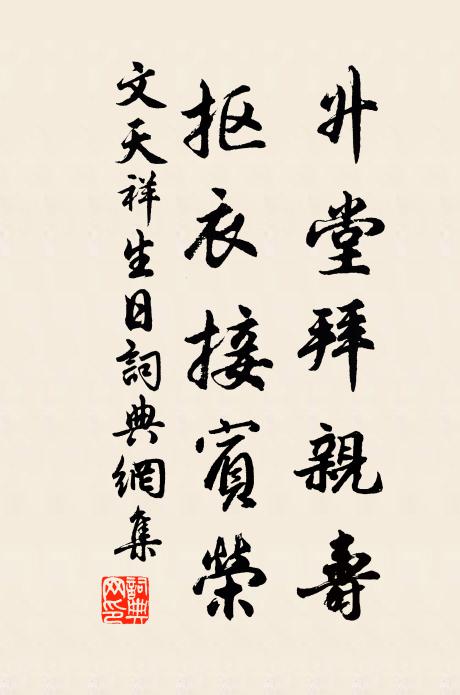 升堂拜親壽
抠衣接賓榮
文天祥生日詞典網集
詞典网印